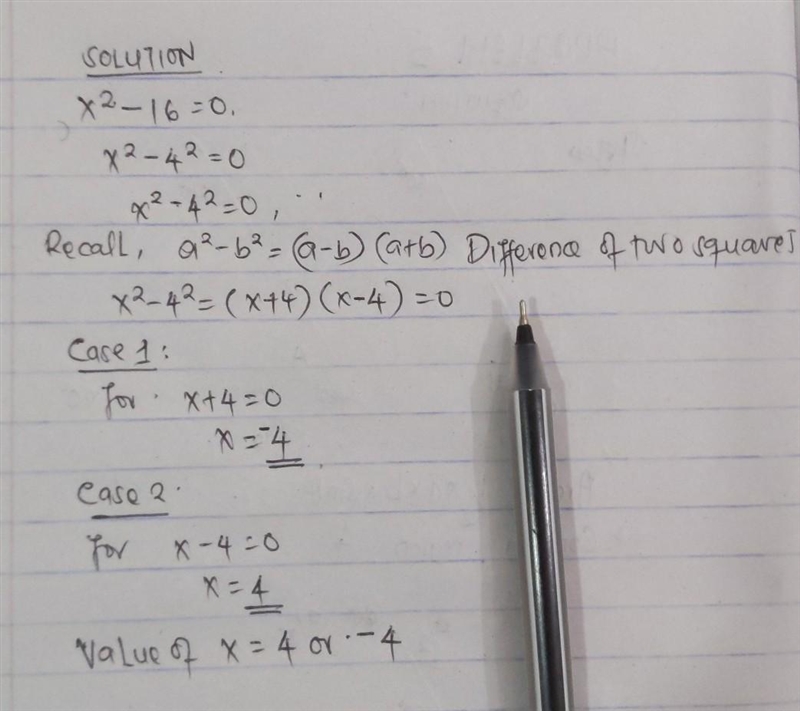 SOLUTION
x² - 16 = 0.
x² - 4² = 0
x² - 4² = 0,
Recall, a² - b² = (a-b) (a+b) Difference of two squares
x² - 4² = (x+4) (x-4) = 0
Case 1:
for. x+4 = 0
x = -4
Case 2.
for x - 4 = 0
x = 4
Value of x = 4 or -4